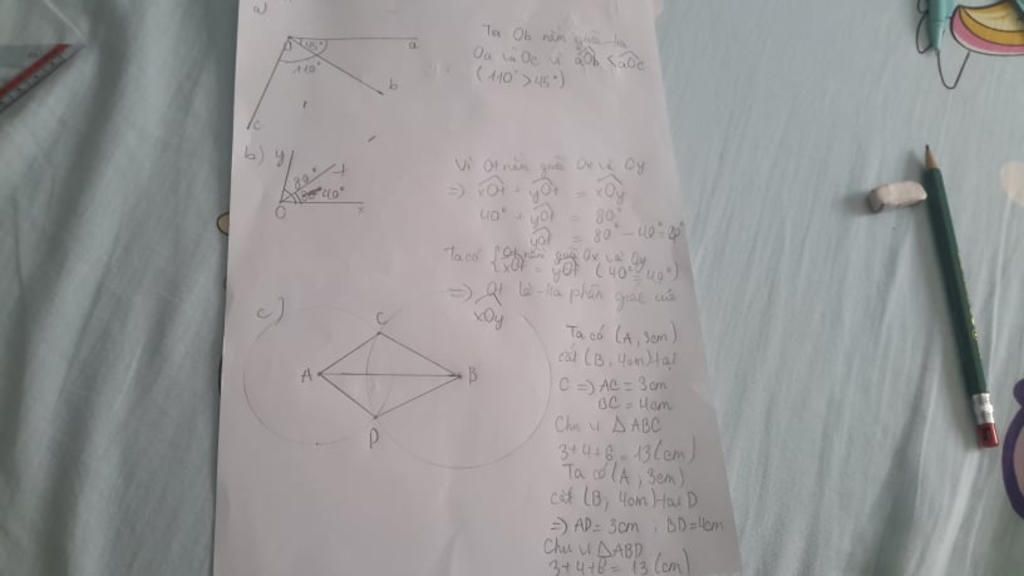 a)
O 45° a
110°
b
c
Ta Ob nằm giữa
Oa và Oc vì aOb < aOc
(110° > 45°)
b) y
80° t
40°
O x
Vì Ot nằm giữa Ox và Oy
=> xOt + yOt = xOy
40° + yOt = 80°
yOt = 80° - 40°
Ta có Ot nằm giữa Ox và Oy
xOt = yOt (40° = 40°)
=> Ot là tia phân giác của
xOy
c)
C
A B
D
Ta có (A, 3cm)
cắt (B, 4cm) tại
C => AC = 3cm
BC = 4cm
Chu vi △ABC
3+4+6 = 13 (cm)
Ta có (A, 3cm)
cắt (B, 4cm) tại D
=> AD = 3cm, BD = 4cm
Chu vi △ABD
3+4+6 = 13 (cm)